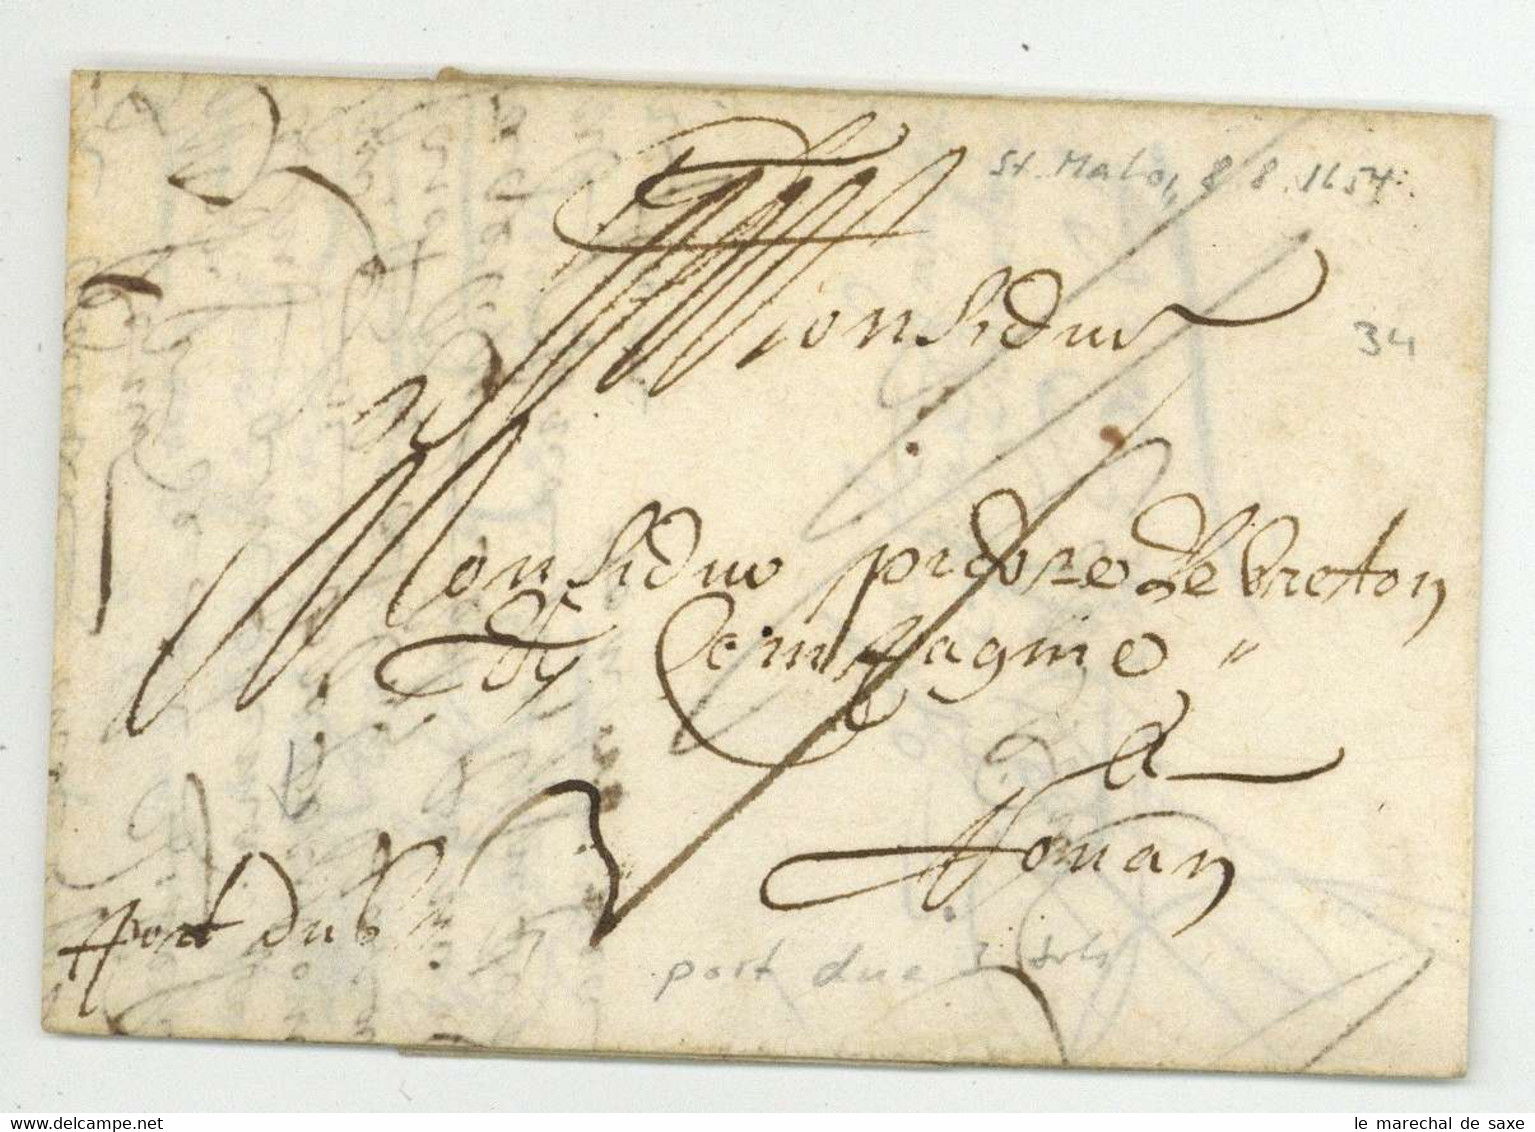 St. Malo, 8.8.1654.
Monsieur
34
Monsieur pierre Le breton
Et Compagnie
A
Rouan
port du
3
port due 3 sols
delcampe.net
le marechal de saxe